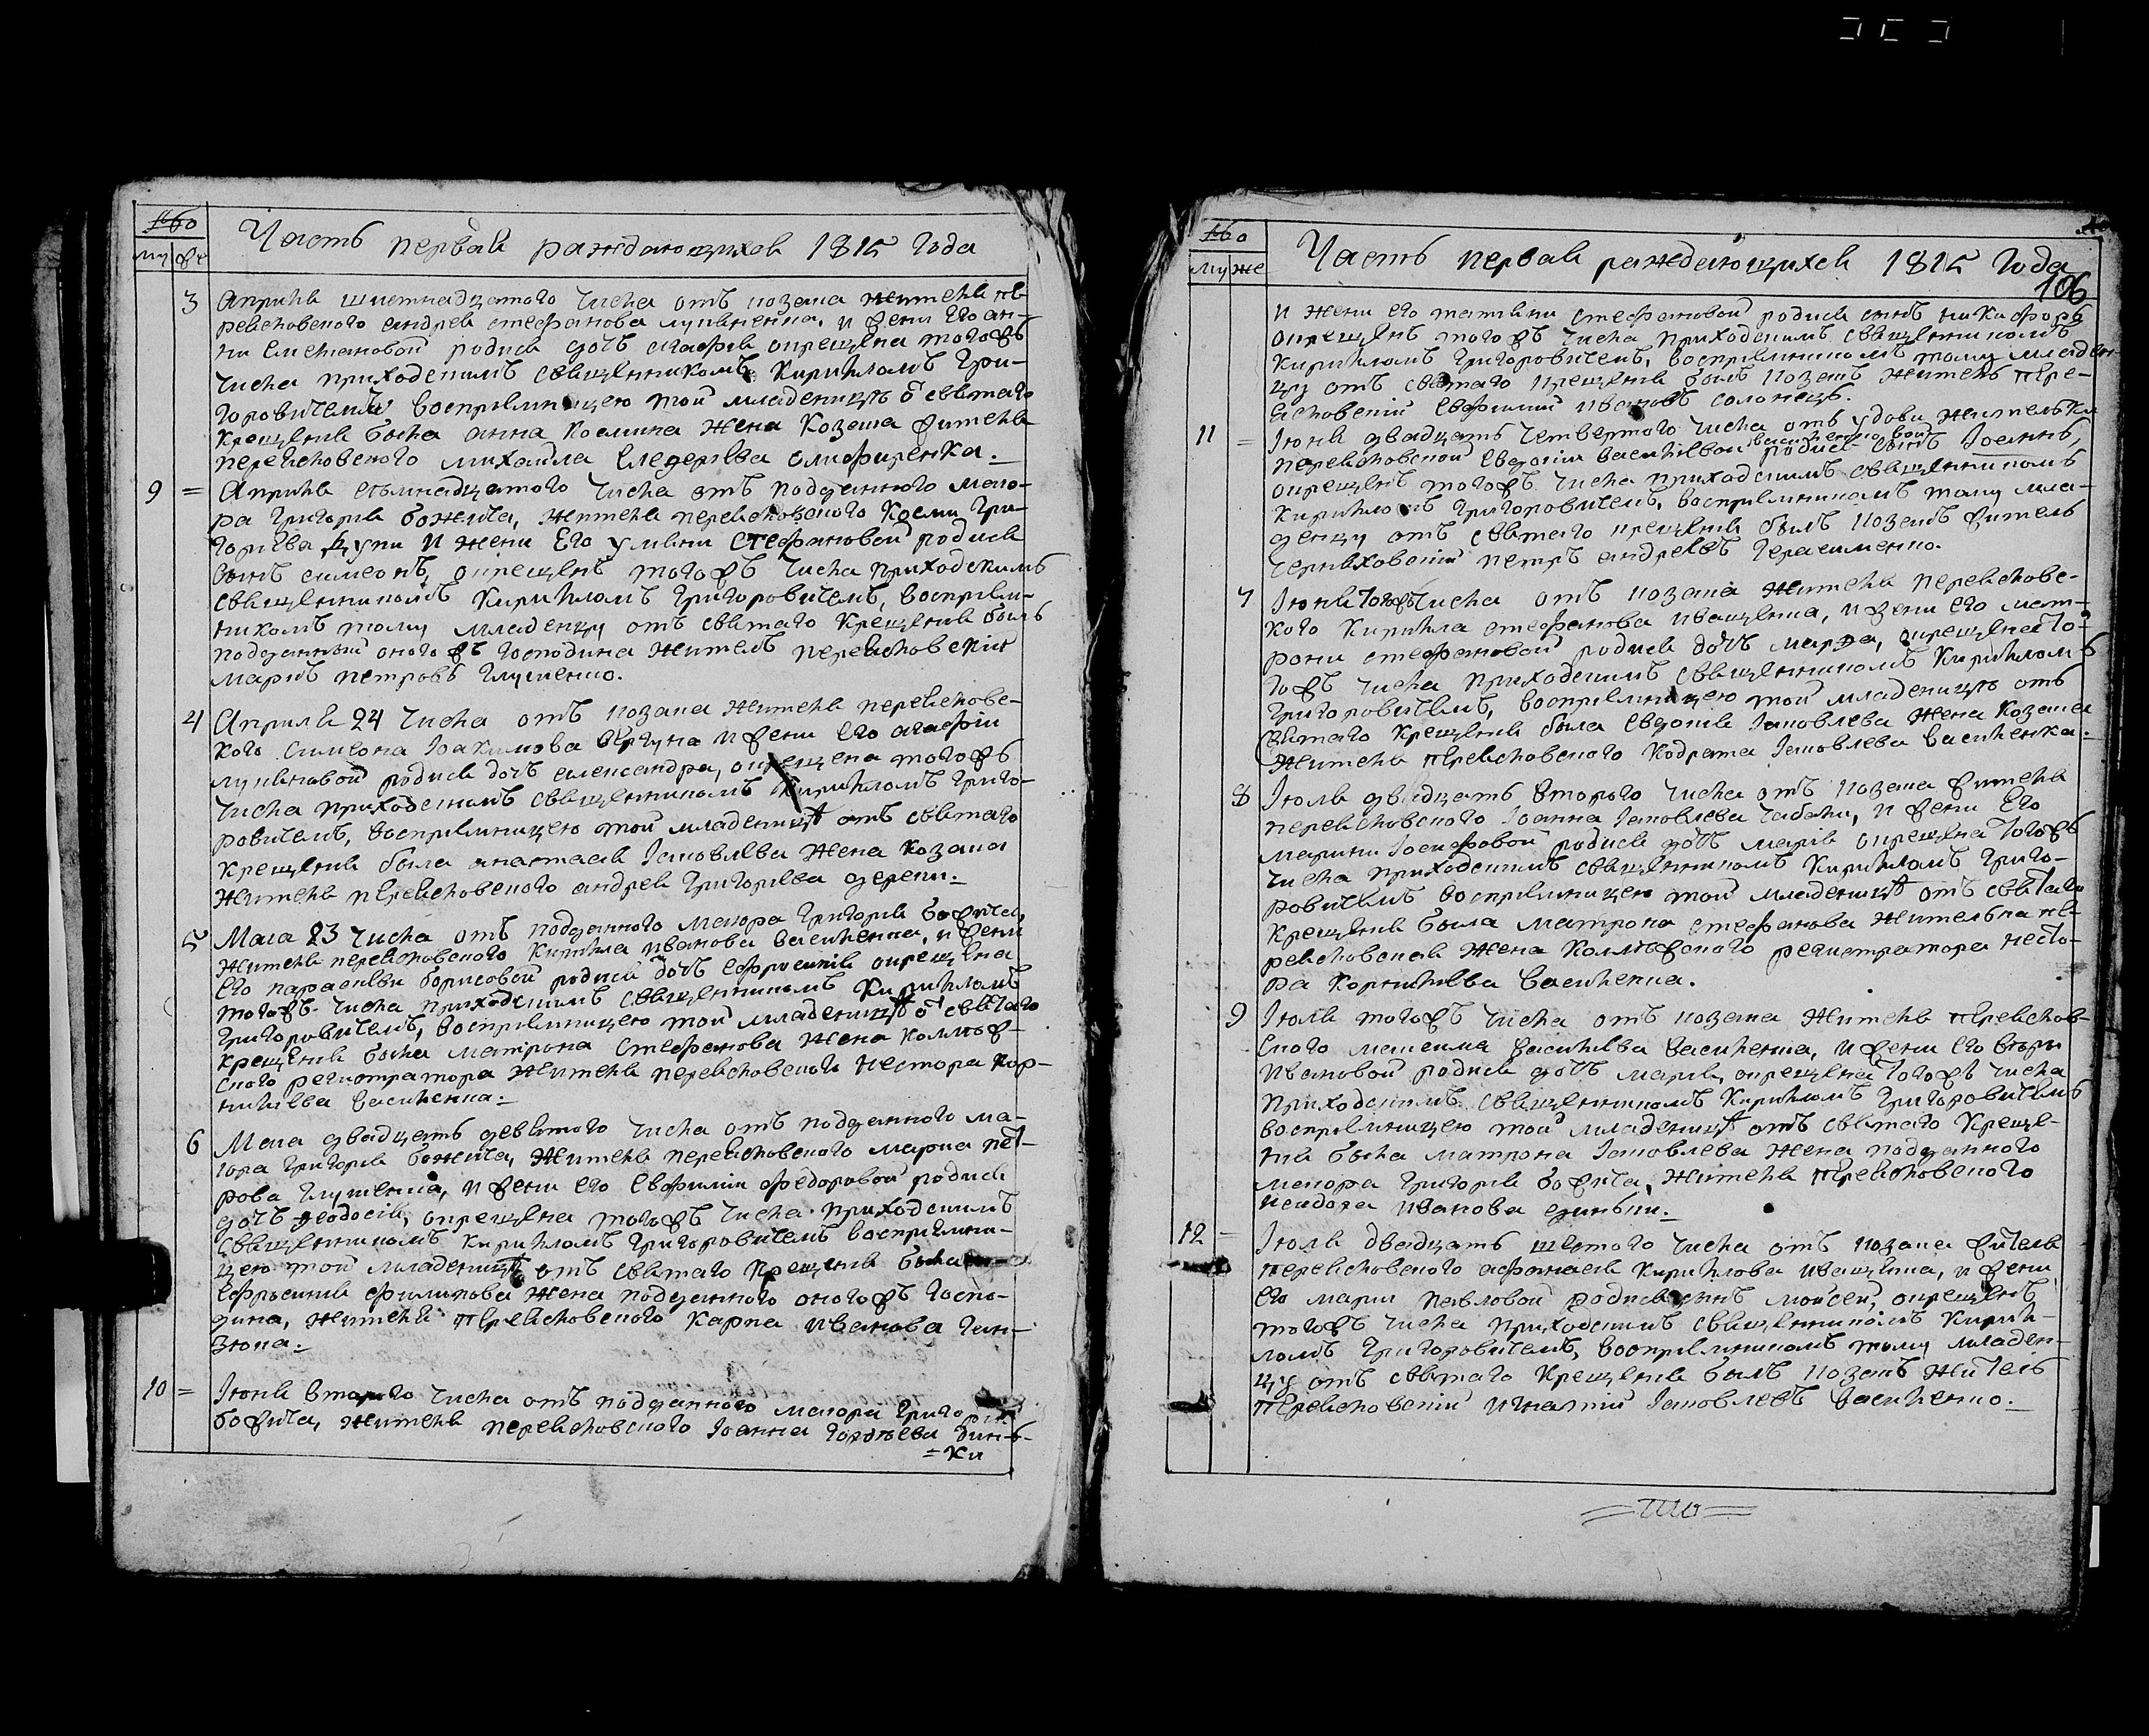 Часть первая раждающихся 1815 года
му же
3 Априля шестнадцатого числа отъ козака жителя пе-
реясловского андрея стефанова луценка, и жени его ан-
ни емелановой родися дочъ агафия окрещена тогожъ
числа приходскимъ священникомъ Кирилломъ Гри-
горовичемъ восприемницею той младеницъ о святаго
крещения была анна козмина жена козака жителя
переясловского михайла
9 = Априля семнадцатого числа отъ подданного маио-
ра Григория божича, жителя переясловского Козми Гри-
гориева и жени его улияни стефановой родися
сынъ симеонъ, окрещенъ тогожъ числа приходскимъ
священникомъ Кирилломъ Григоровичемъ, восприем-
никомъ тому младенцу отъ святаго крещения былъ
подданный оного жъ господина житель переясловский
марко петровъ глущенко.
4 Априля 24 числа отъ козака жителя переясловс-
кого Симеона Іоакимова вергуна и жени его агафии
лукяновой родися дочъ александра, окрещена тогожъ
числа приходскимъ священникомъ Кирилломъ Григо-
ровичемъ, восприемницею той младеницѣ отъ святаго
крещения была анастасия Іаковлева жена козака
жителя переясловского андрея Григориева
5 Маия 23 числа отъ подданного маиора Григория божича,
жителя переясловского Кирилла иванова василенка, и жени
его параскеви борисовой родися дочъ ефросиния окрещена
тогожъ числа приходскимъ священникомъ Кирилломъ
Григоровичемъ, восприемницею той младеницѣ о святаго
крещения была матрона стефанова жена коллеж-
ского регистратора жителя переясловского Нестора кор-
нилиева василенка.
6 Маия двадцать девятого числа отъ подданного ма-
иора Григория божича, жителя переясловского марка пет-
рова глущенка, и жени его Евфимии федоровой родися
дочъ феодосия, окрещена тогожъ числа приходскимъ
священникомъ Кирилломъ Григоровичемъ восприемни-
цею той младеницѣ отъ святаго крещения была
Ефросиния филипова жена подданного оногожъ госпо-
дина, жителя переясловского карпа иванова ган-
зюка.
10 = Іюня второго числа отъ подданного маиора Григория
божича, жителя переясловского Іоанна гордѣева динь-
= ки
Часть первая раждающихся 1815 года
106
му же
и жени его татияни стефановой родися синъ никифоръ
окрещенъ тогожъ числа приходскимъ священникомъ
Кирилломъ Григоровичемъ, восприемникомъ тому младен-
цу отъ святаго крещения былъ козакъ житель пере-
ясловский евфимий ивановъ солонецъ.
11 = Іюня двадцать четвертого числа отъ удови жителки
переясловской евдокии василиевой родися сынъ Іоаннъ,
окрещенъ тогожъ числа приходскимъ священникомъ
Кирилломъ Григоровичемъ, восприемникомъ тому мла-
денцу отъ святаго крещения былъ козакъ житель
петръ андреевъ герасименко.
7 Іюня тогожъ числа отъ козака жителя переясловс-
кого Кирилла стефанова иващенка, и жени его мат-
рони стефановой родися дочъ марфа, окрещена то-
гожъ числа приходскимъ священникомъ Кирилломъ
Григоровичемъ, восприемницею той младеницѣ отъ
святаго крещения была евдокия Іаковлева жена козака
жителя переясловского Кодрата Іаковлева василенка.
8 Іюля двадцать второго числа отъ козака жителя
переясловского Іоанна Іаковлева чабана, и жени его
марини Іосифовой родися дочъ мария окрещена тогожъ
числа приходскимъ священникомъ Кирилломъ Григо-
ровичемъ восприемницею той младеницѣ отъ святаго
крещения была матрона стефанова жителька пе-
реясловская жена коллежского регистратора несто-
ра корнилиева василенка.
9 Іюля тогожъ числа отъ козака жителя переяслов-
ского максима василиева василенка, и жени его вѣри
ивановой родися дочъ мария, окрещена тогожъ числа
приходскимъ священникомъ Кирилломъ Григоровичемъ
восприемницею той младеницѣ отъ святаго креще-
ния была матрона Іаковлева жена подданного
маиора Григория божича, жителя переясловского
исидора иванова диньки.
12 - Іюля двадцать шестого числа отъ козака жителя
переясловского афанасия Кириллова иващенка, и жени
его марии павловой родися синъ мойсей, окрещенъ
тогожъ числа приходскимъ священникомъ Кирил-
ломъ Григоровичемъ, восприемникомъ тому младен-
цу отъ святаго крещения былъ козакъ житель
переясловский игнатий Іаковлевъ василенко.